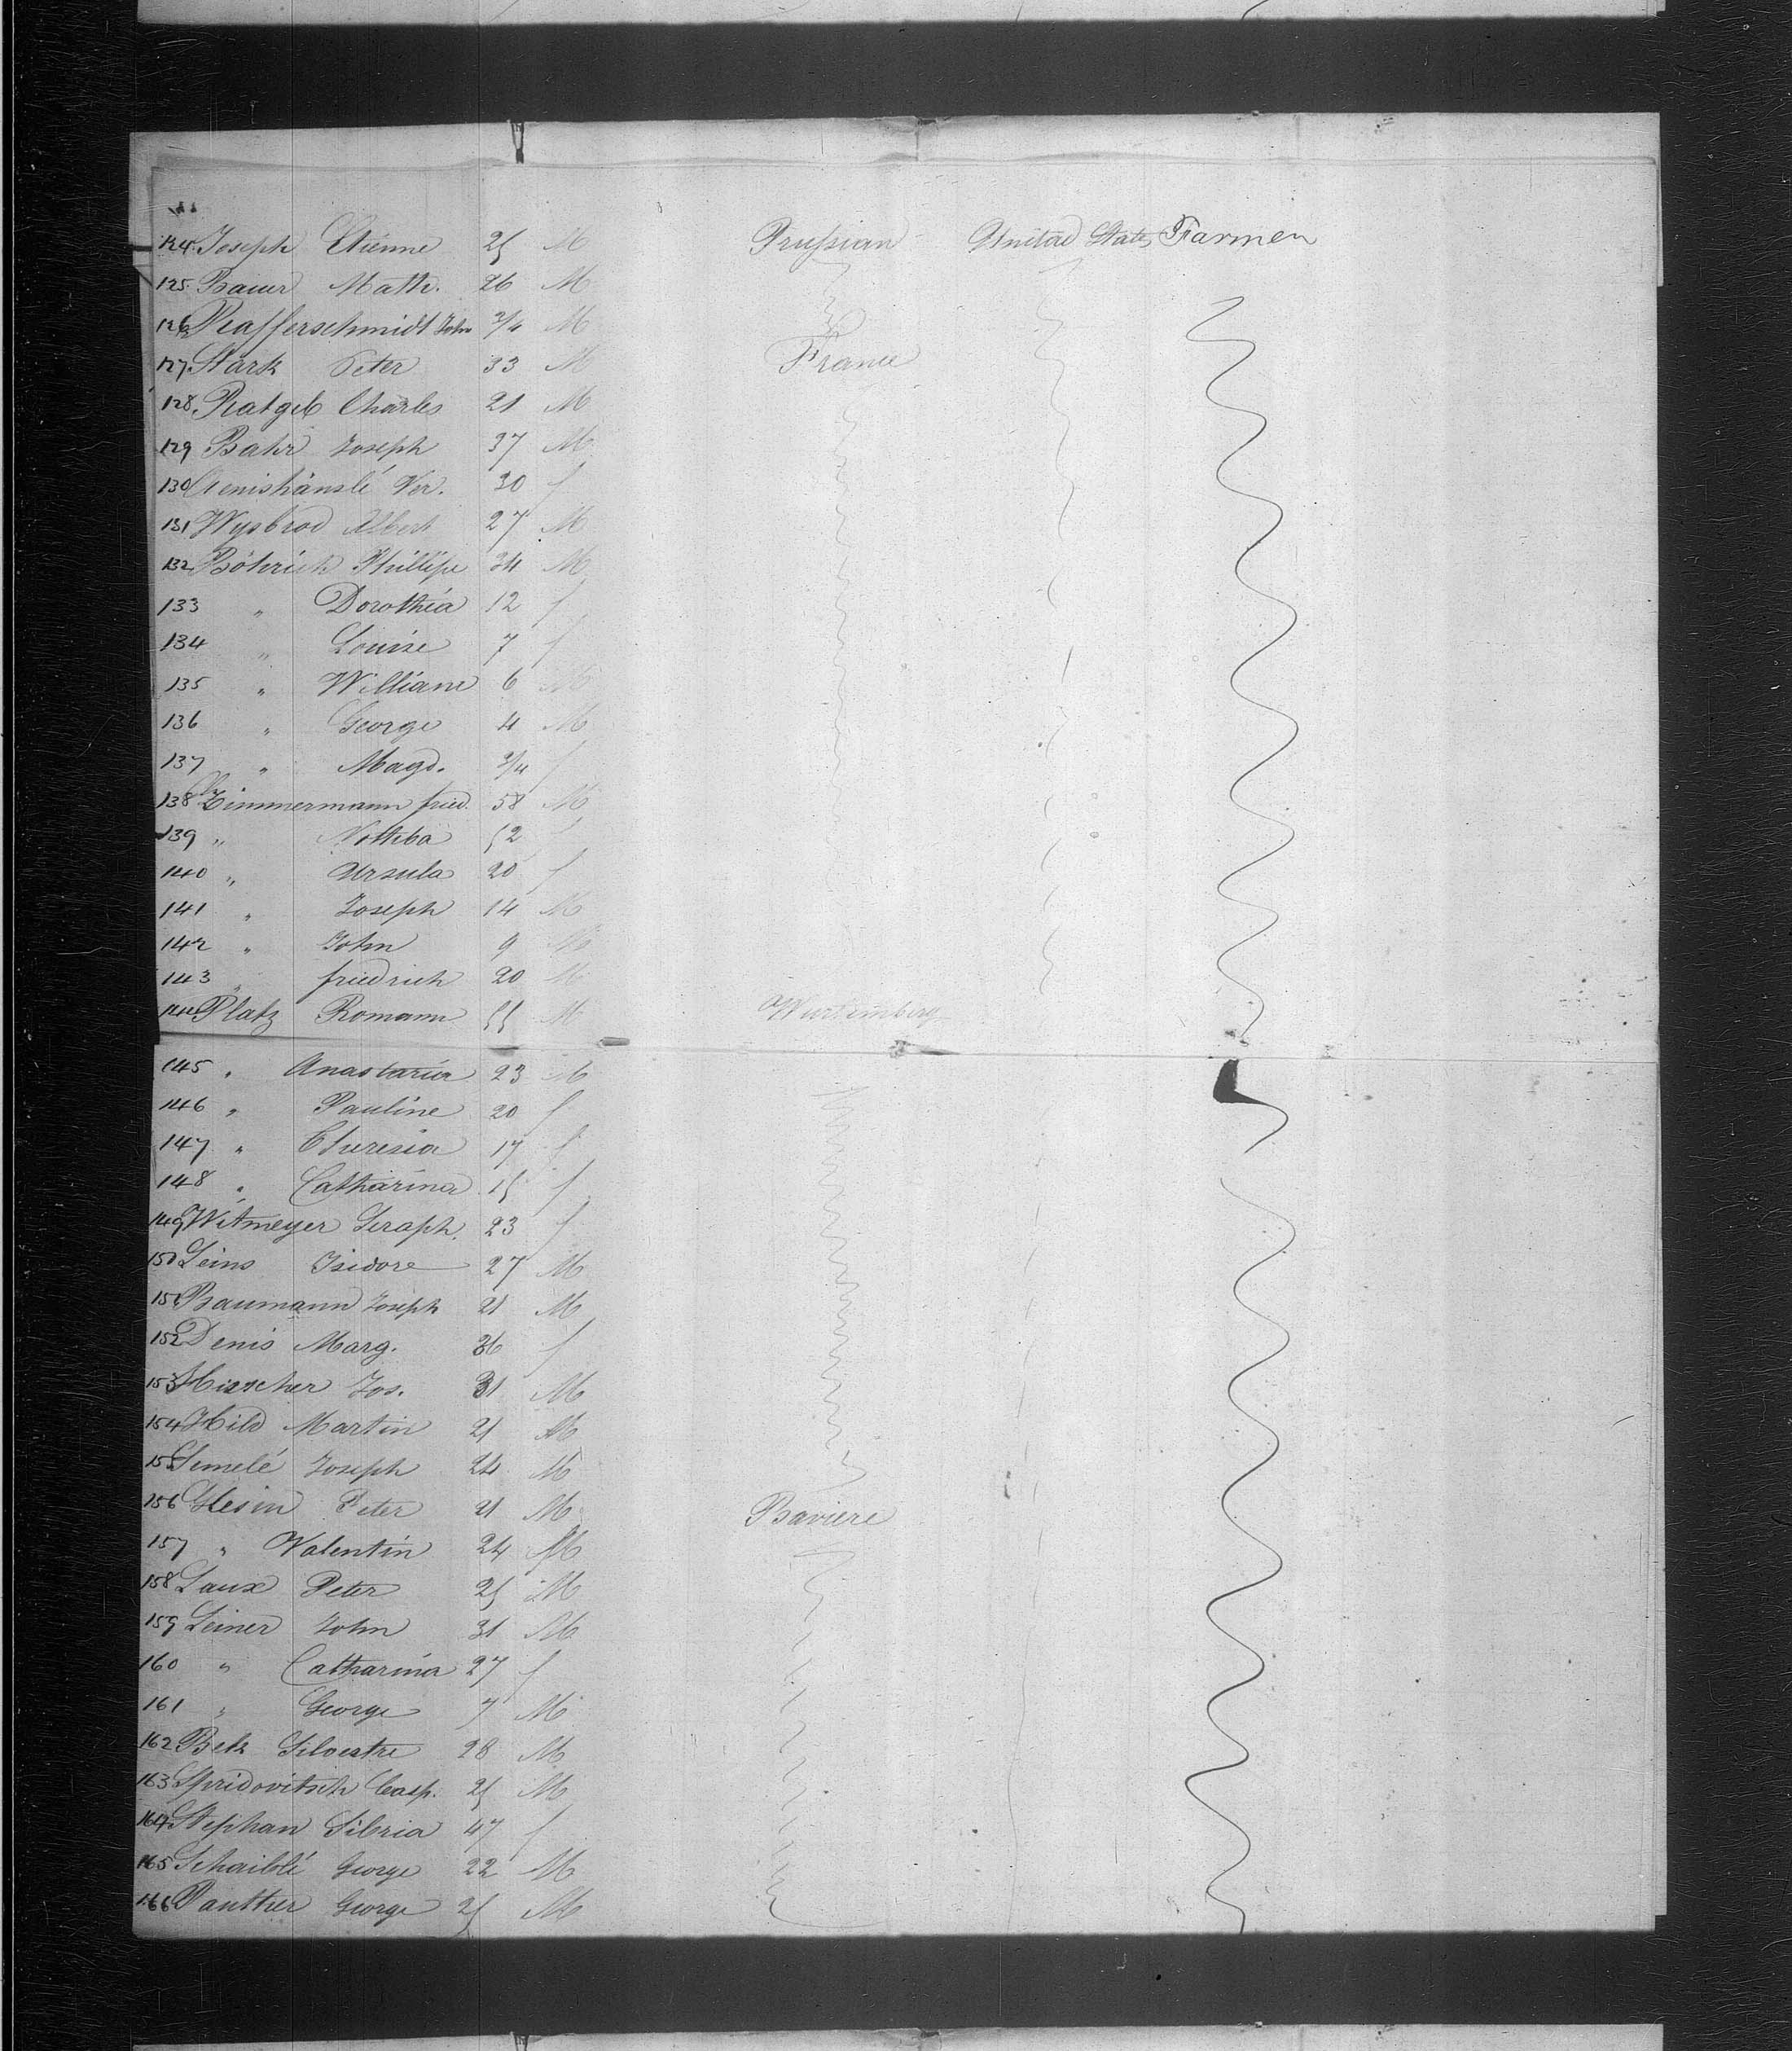 124. Joseph Etienne 25 M Prussian United States Farmer
125. Bauer Math. 26 M
126. Pfafferschmidt John 3/4 M
127. Stark Peter 33 M France
128. Ratgeb Charles 21 M
129 Bahr Joseph 37 M
130 Ver. 30 f
131 Wysbrod Albert 27 M
132 Böhrich Phillipe 34 M
133 " Dorothéa 12 f
134 " Louise 7 f
135 " William 6 M
136 " George 4 M
137 " Magd. 3/4 f
138 Zimmermann fried. 58 M
139 " Nothba 52 f
140 " Ursula 20 f
141 " Joseph 14 M
142 " John 9 M
143 " friedrich 20 M
144 Platz Romann 55 M Wurtemberg
145 " Anastasia 23 M
146 " Pauline 20 f
147 " Theresia 17 f
148 " Catharina 15 f
149 Witmeyer Seraph. 23 f
150 Leins Isidore 27 M
151 Baumann Joseph 21 M
152 Denis Marg. 36 f
153 Hisscher Jos. 31 M
154 Hild Martin 21 M
155 Semelé Joseph 24 M
156 Glesin Peter 21 M Baviere
157 " Valentin 24 M
158 Laux Peter 25 M
159 Leiner John 31 M
160 " Catharina 27 f
161 " George 7 M
162 Betz Silvestre 28 M
163 Spridovitsch Casp. 25 M
164 Stephan Sibria 47 f
165 Schaiblé George 22 M
166 Panther George 25 M